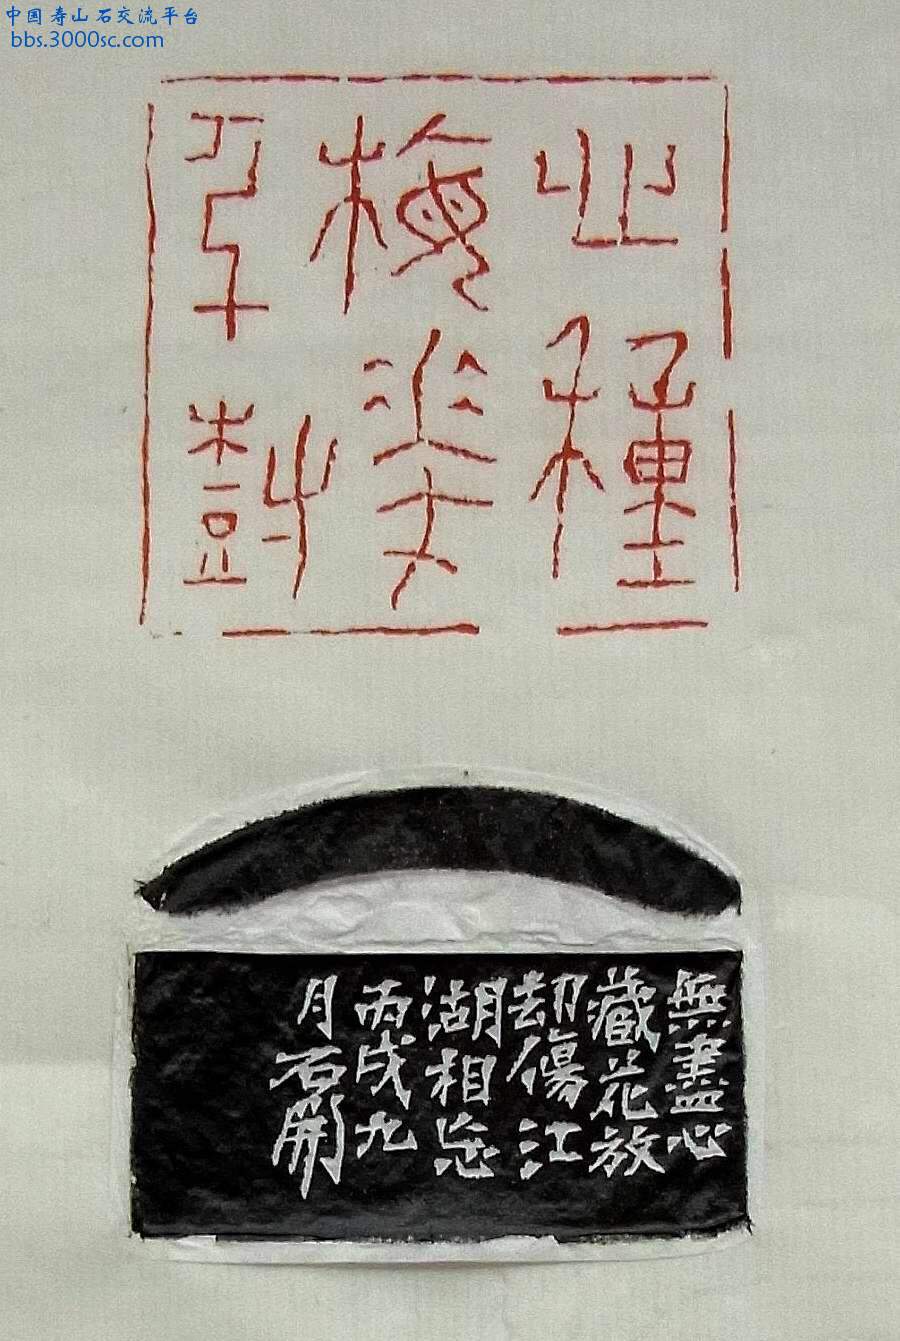 中国寿山石交流平台
bbs.3000sc.com
種
梅華
樹
無盡心
藏花放
劫傷江
湖相忘
丙戌九
月石開